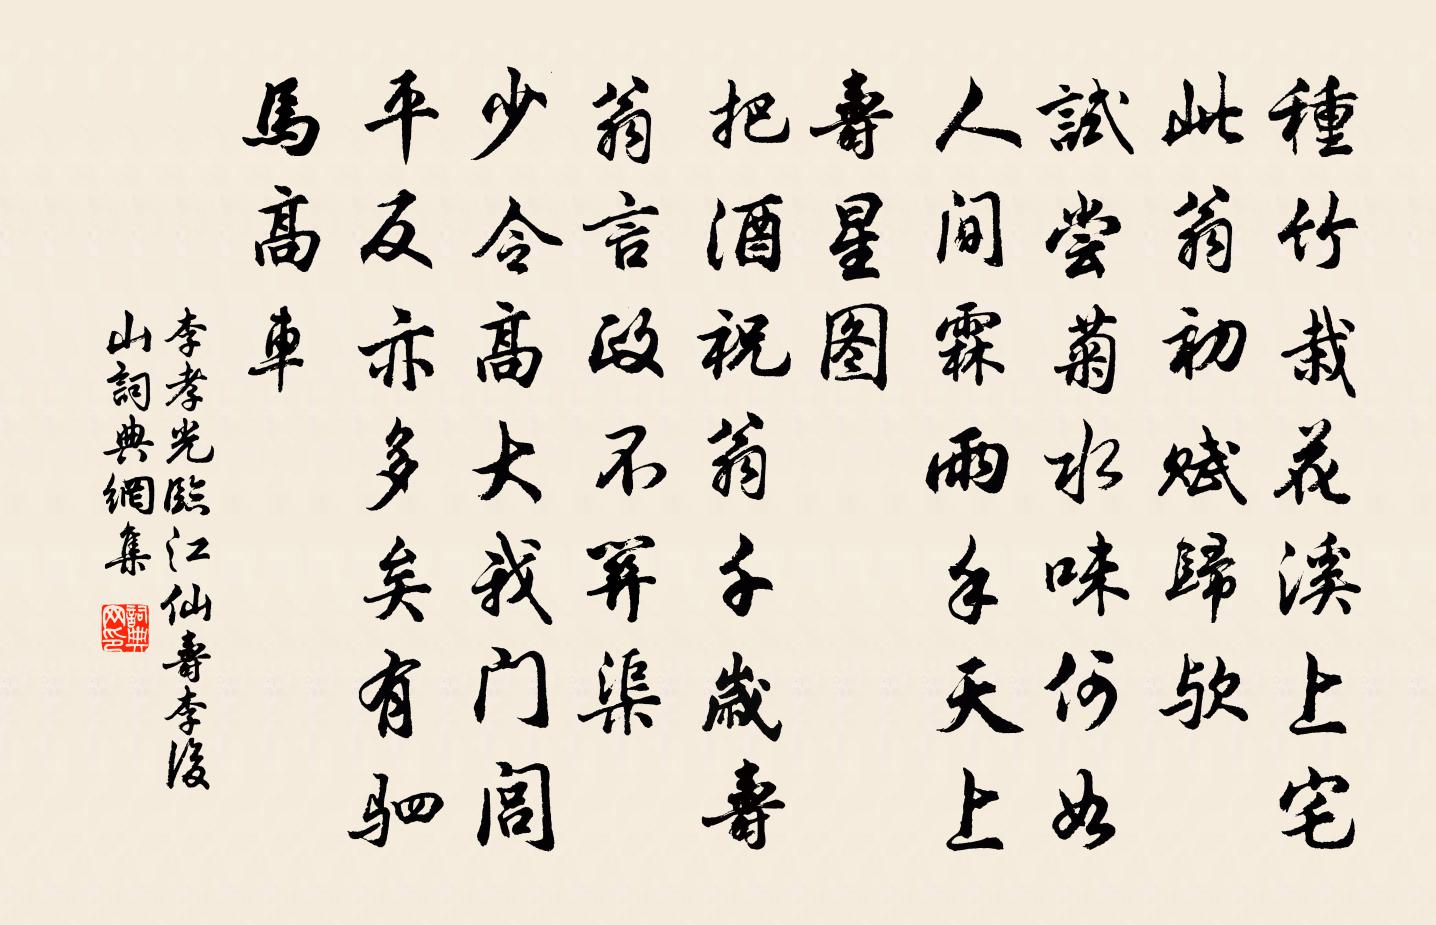 種竹栽花溪上宅
此翁初賦歸欤
試嘗菊水味何如
人间霖雨手天上
壽星图
把酒祝翁千歲壽
翁言政不筭渠
少令高大我门闾
平反亦多矣有驷
馬高車
李孝光臨江仙壽李後
山詞典網集
詞典
网印